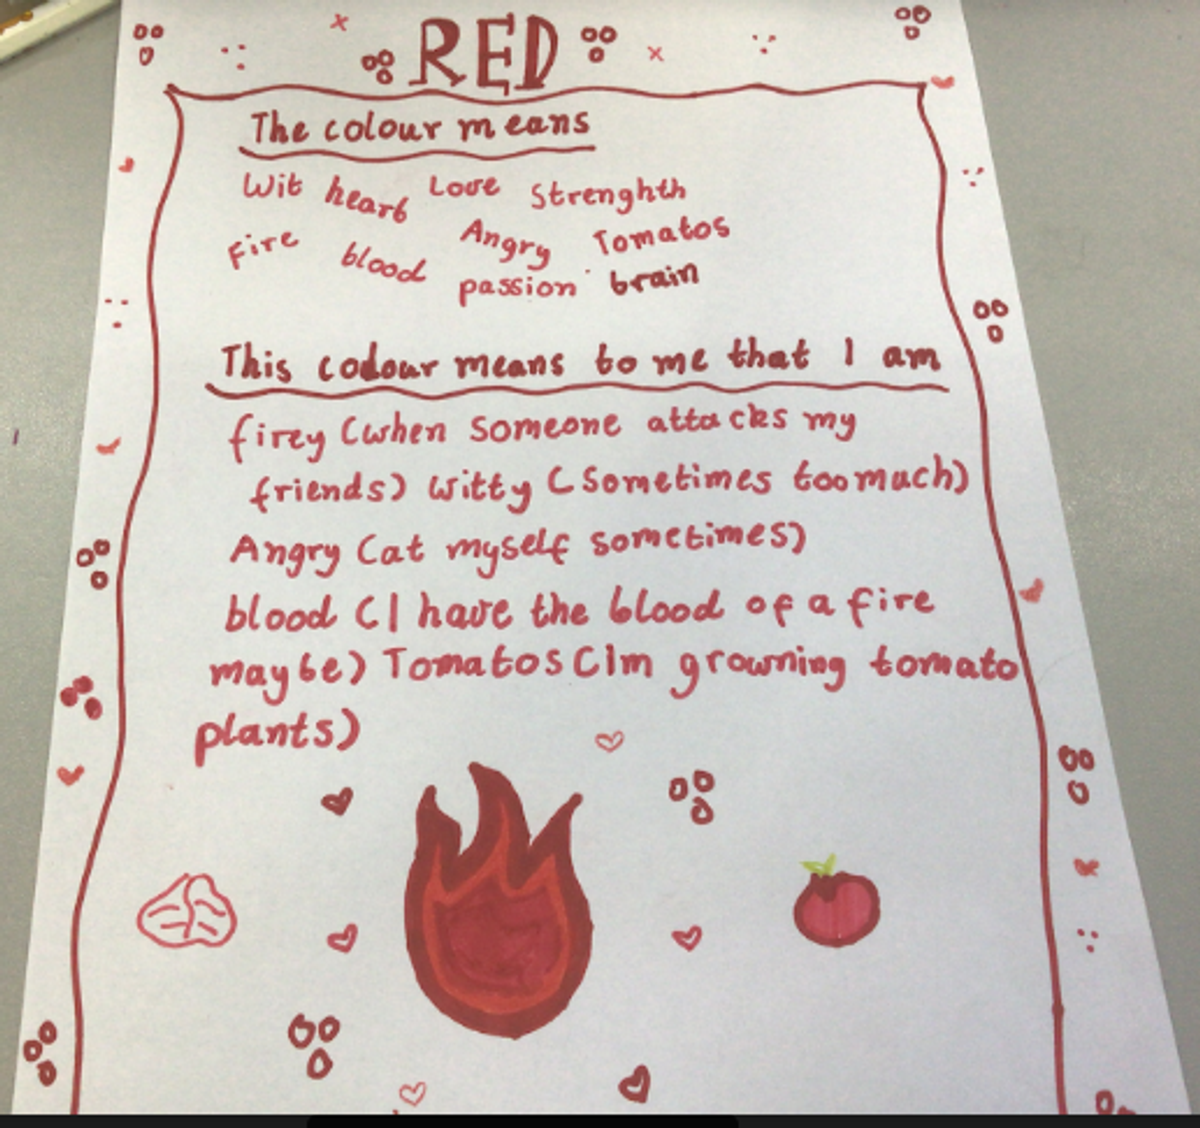 RED
The colour means
Wit heart Love Strenghth
Fire blood Angry Tomatos
passion brain
This colour means to me that I am
firey (when someone attacks my
friends) witty (sometimes too much)
Angry (at myself sometimes)
blood (I have the blood of a fire
maybe) Tomatos (Im growning tomato
plants)